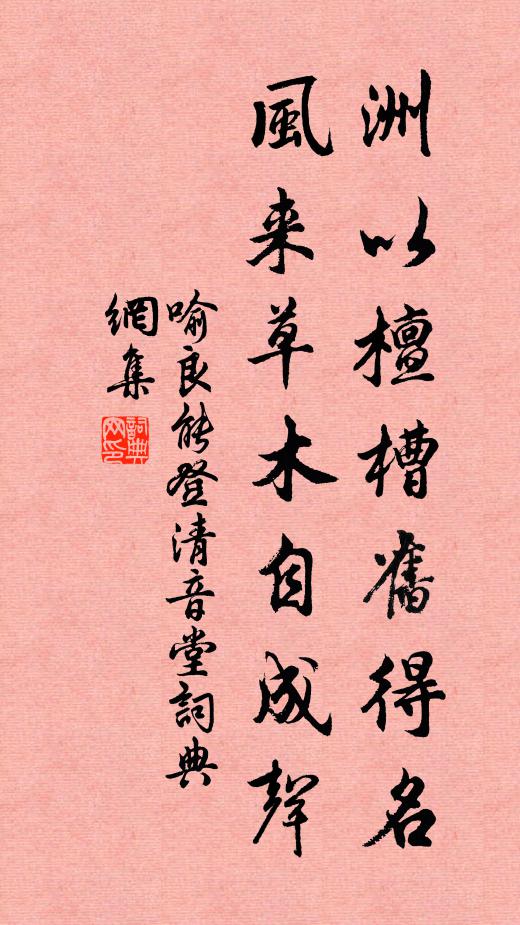 洲以檀槽舊得名
風来草木自成聲
喻良能登清音堂詞典
網集
詞典
网印